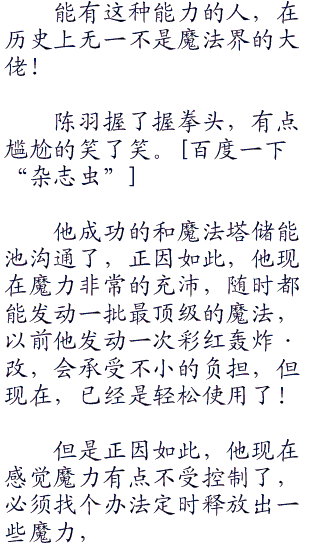 能有这种能力的人，在
历史上无一不是魔法界的大
佬！
陈羽握了握拳头，有点
尴尬的笑了笑。[百度一下
“杂志虫”]
他成功的和魔法塔储能
池沟通了，正因如此，他现
在魔力非常的充沛，随时都
能发动一批最顶级的魔法，
以前他发动一次彩红轰炸·
改，会承受不小的负担，但
现在，已经是轻松使用了！
但是正因如此，他现在
感觉魔力有点不受控制了，
必须找个办法定时释放出一
些魔力，